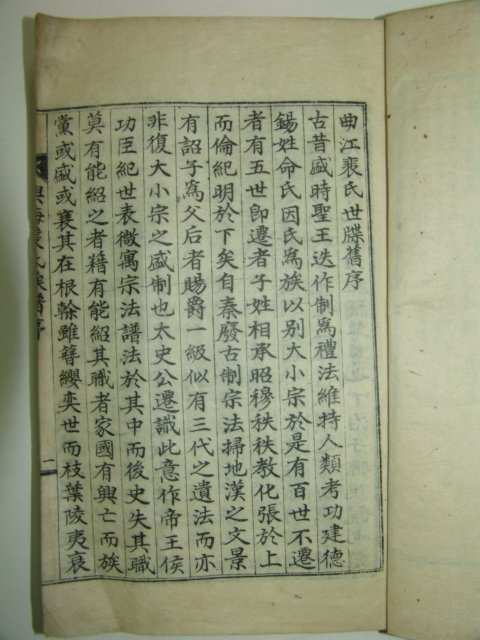 曲江裴氏世牒舊序
古昔盛時聖王迭作制爲禮法維持人類考功建德
錫姓命氏因氏爲族以別大小宗於是有百世不遷
者有五世卽遷者子姓相承昭穆秩秩教化張於上
而倫紀明於下矣自秦廢古制宗法掃地漢之文景
有詔子爲父后者賜爵一級似有三代之遺法而亦
非復大小宗之盛制也太史公遷識此意作帝王侯
功臣紀世表微寓宗法譜法於其中而後史失其職
莫有能紹之者籍有能紹其職者家國有興亡而族
黨或盛或衰其在根榦雖簪纓奕世而枝葉陵夷衰
興海裴氏族譜序
一